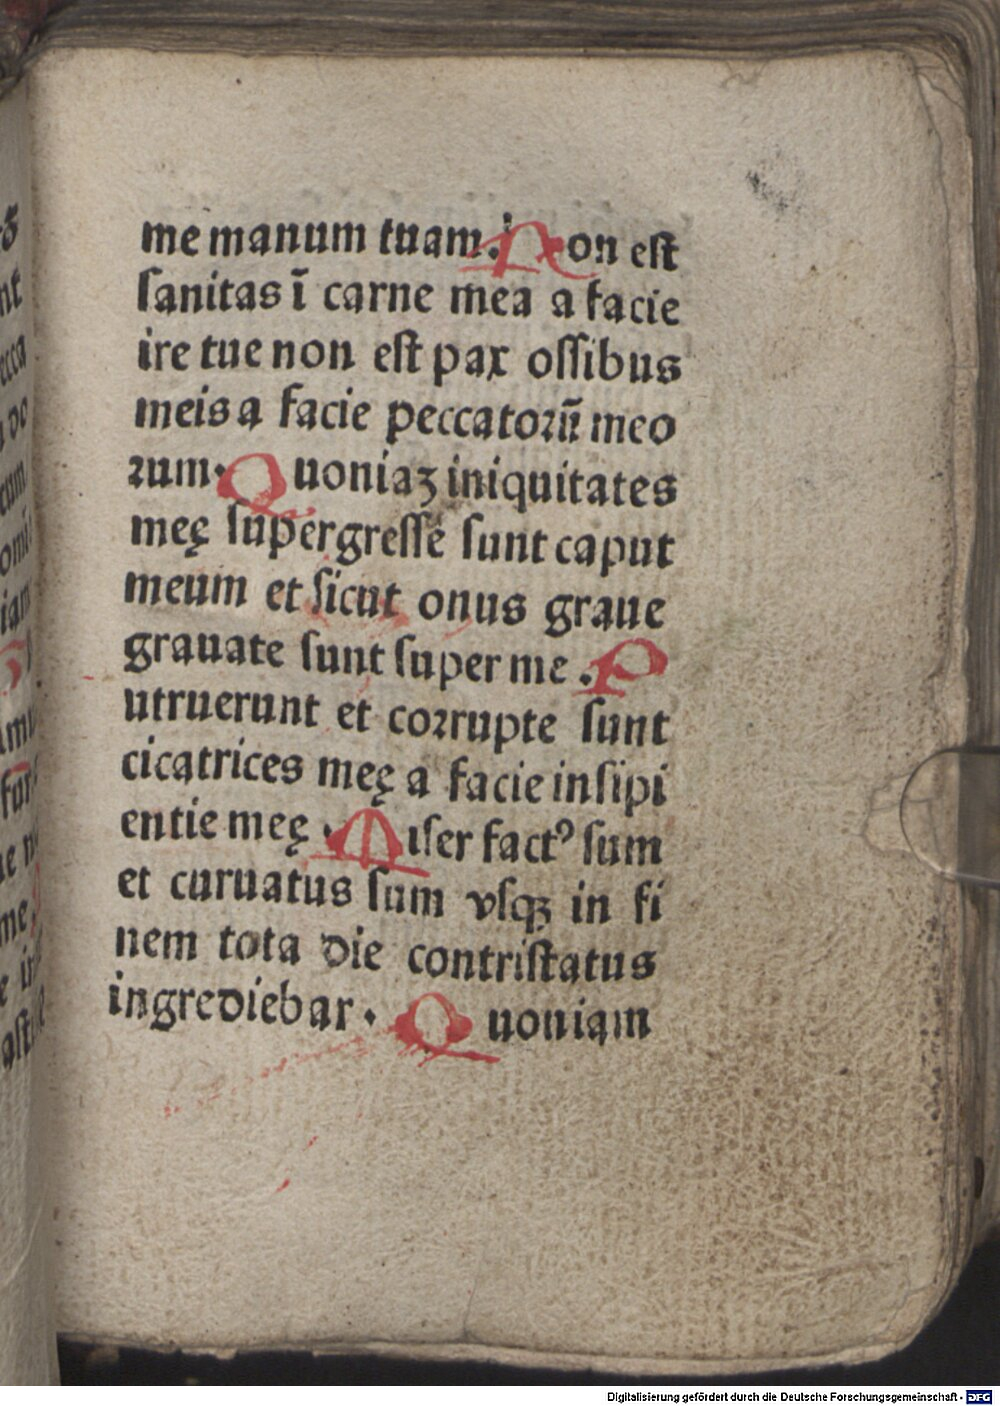 me manum tuam. Non eſt
ſanitas ī carne mea a facie
ire tue non eſt pax oſſibus
meis a facie peccatoꝛū meo
ꝛum. Quoniaꝫ iniquitates
meę ſupergreſſe ſunt caput
meum et ſicut onus graue
grauate ſunt ſuper me . P
utruerunt et coꝛrupte ſunt
cicatrices meę a facie inſipi
entie meę . Miſer factꝰ ſum
et curuatus ſum vſqꝫ in fi
nem tota die contriſtatus
ingrediebar . Quoniam
Digitalisierung gefördert durch die Deutsche Forschungsgemeinschaft - DFG